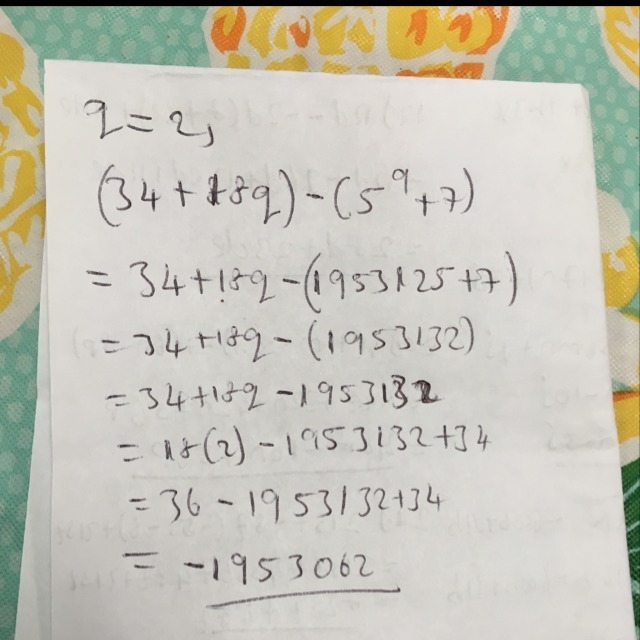 q = 2,
(34 + 18q) - (5⁹ + 7)
= 34 + 18q - (1953125 + 7)
= 34 + 18q - (1953132)
= 34 + 18q - 1953132
= 18(2) - 1953132 + 34
= 36 - 1953132 + 34
= -1953062